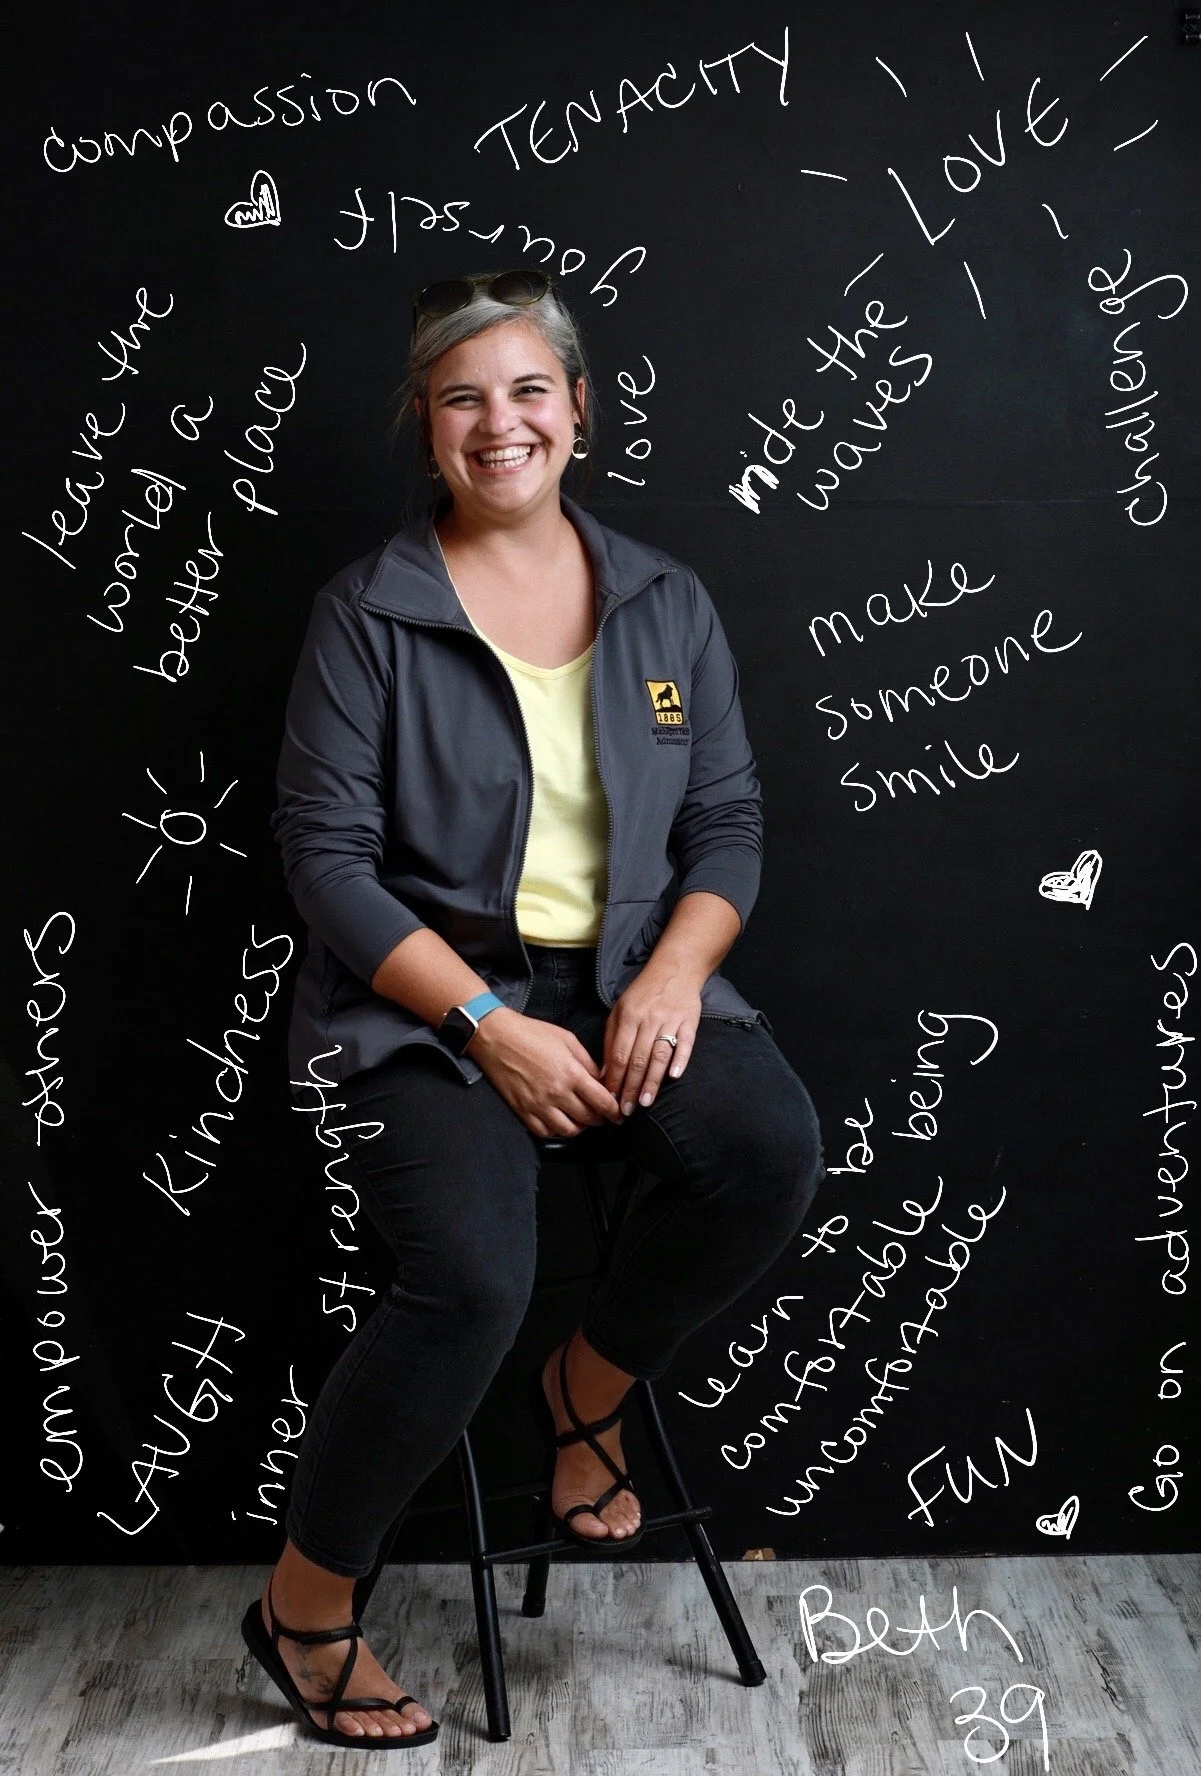 compassion
TENACITY
LOVE
love yourself
leave the
world a
better place
ride the
waves
challenge
make
someone
smile
Kindness
empower others
inner strength
LAUGH
learn to be
comfortable being
uncomfortable
FUN
Go on adventures
Beth
39
1885
Michigan Tech
Admissions